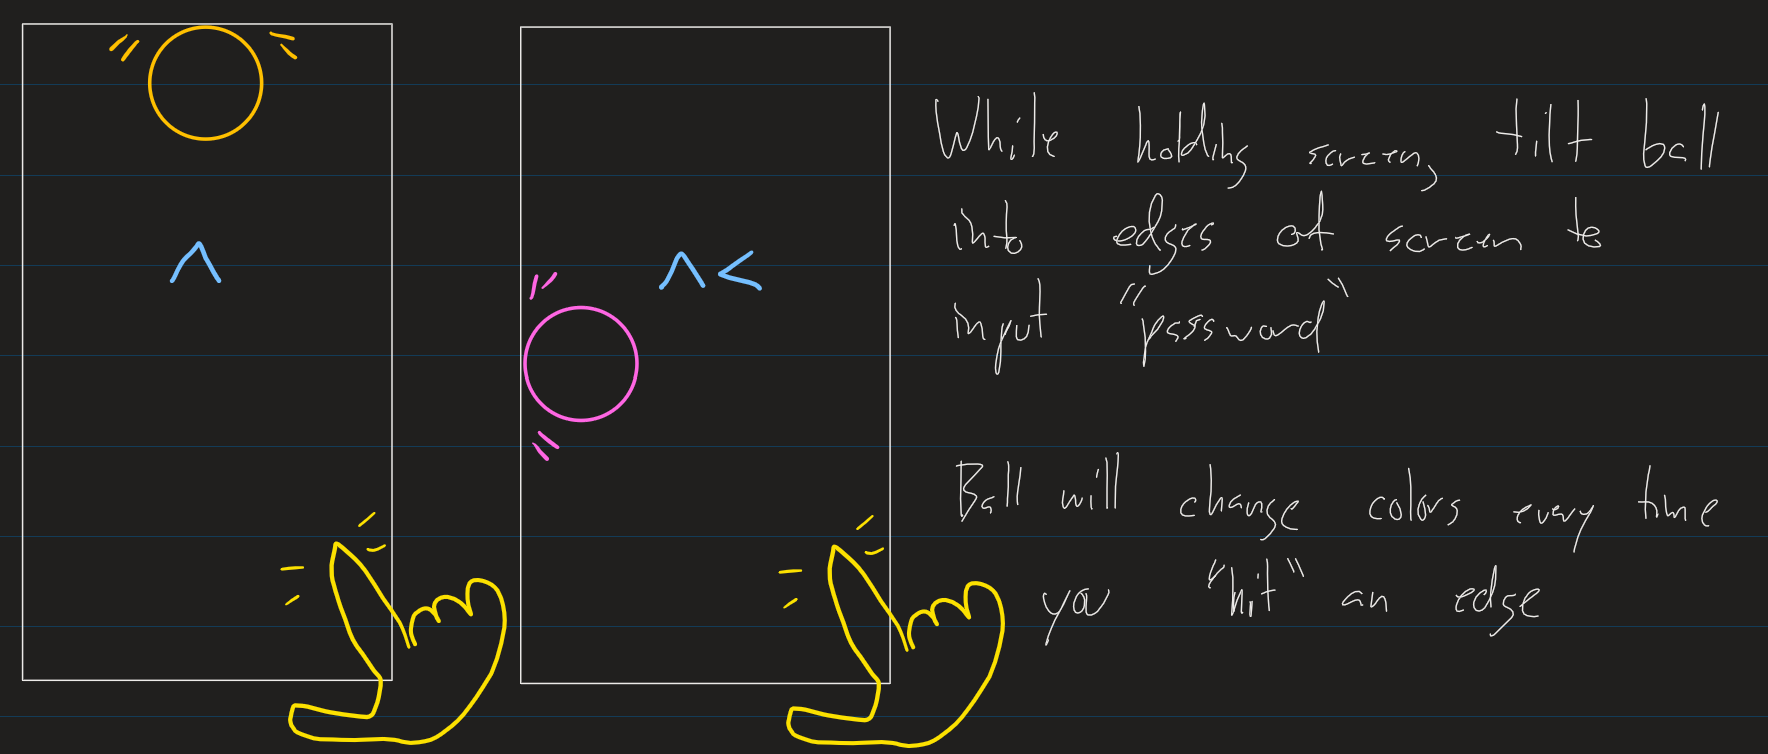 ^
^<
While holding screen, tilt ball
into edges of screen to
input "password"
Ball will change colors every time
you "hit" an edge